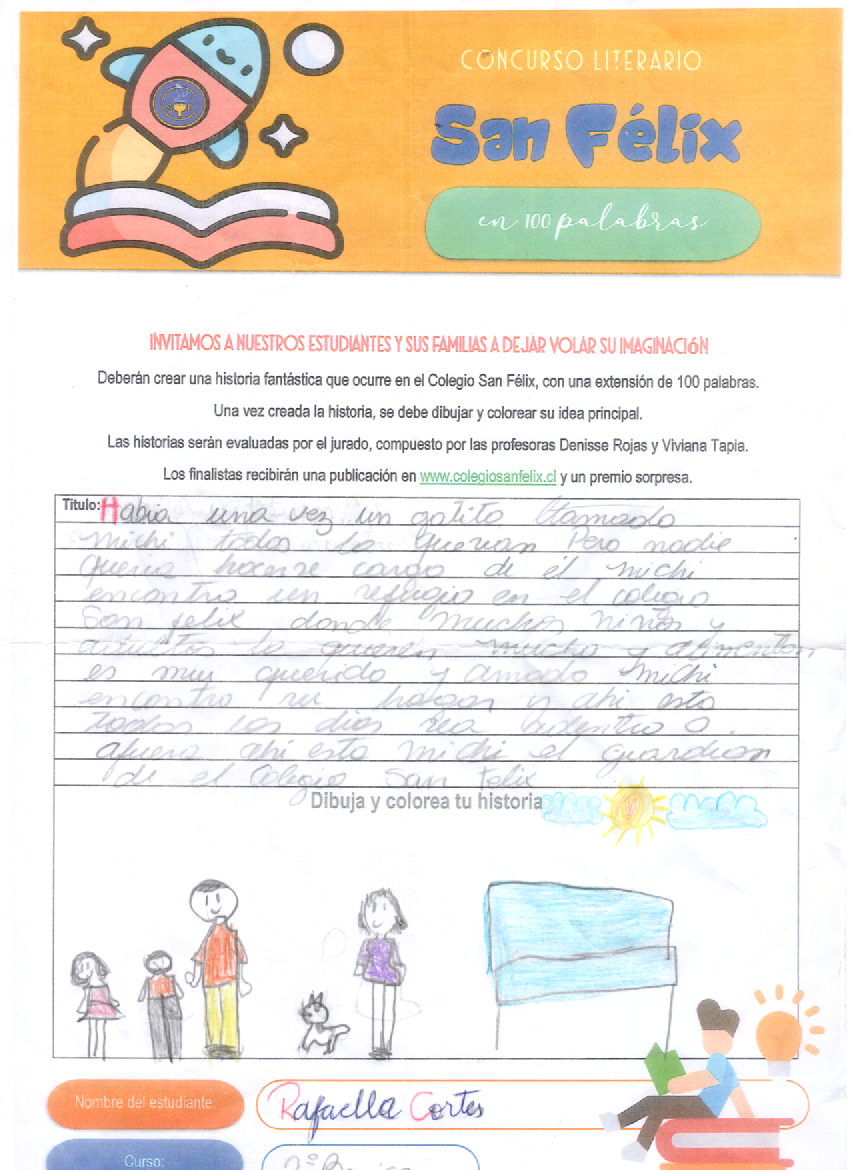 CONCURSO LITERARIO
San Félix
en 100 palabras
INVITAMOS A NUESTROS ESTUDIANTES Y SUS FAMILIAS A DEJAR VOLAR SU IMAGINACIÓN
Deberán crear una historia fantástica que ocurre en el Colegio San Félix, con una extensión de 100 palabras.
Una vez creada la historia, se debe dibujar y colorear su idea principal.
Las historias serán evaluadas por el jurado, compuesto por las profesoras Denisse Rojas y Viviana Tapia.
Los finalistas recibirán una publicación en www.colegiosanfelix.cl y un premio sorpresa.
Titulo: Habia una vez un gatito llamado
michi todos lo querian Pero nadie
queria hacerse cargo de él michi
encontro un refugio en el colegio
San felix donde muchos niños y
adultos lo quieren mucho y alimentan
es muy querido y amado michi
encontro su hogar y ahi esta
todos los dias sea adentro o
afuera ahi esta michi el guardian
de el Colegio San Felix
Dibuja y colorea tu historia
Nombre del estudiante: Rafaella Cortes
Curso: 2º Basico